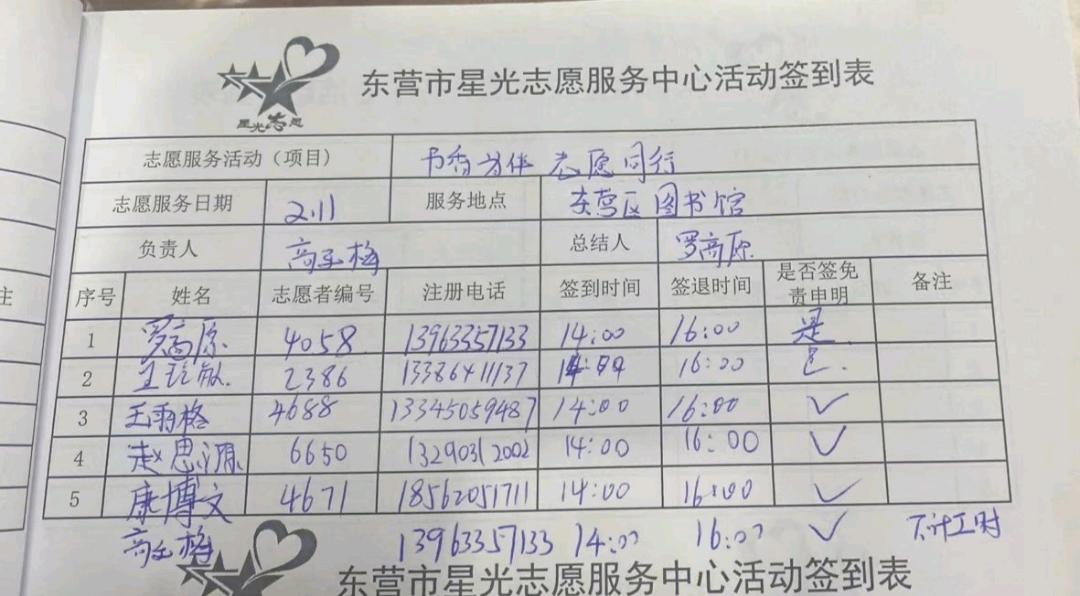 星光志愿
东营市星光志愿服务中心活动签到表
志愿服务活动（项目） 书香为伴 志愿同行
志愿服务日期 2.11 服务地点 东营区图书馆
负责人 高玉梅 总结人 罗高原
序号 姓名 志愿者编号 注册电话 签到时间 签退时间 是否签免责申明 备注
1 罗高原 4058 13963357133 14:00 16:00 是
2 2386 13386411137 16:00
3 王雨格 4688 13345059487 14:00 16:00 ✓
4 赵思源 6650 13290312002 14:00 16:00 ✓
5 康博文 4671 18562051711 14:00 16:00 ✓
高玉梅 13963357133 14:00 16:00 ✓ 不计工时
东营市星光志愿服务中心活动签到表